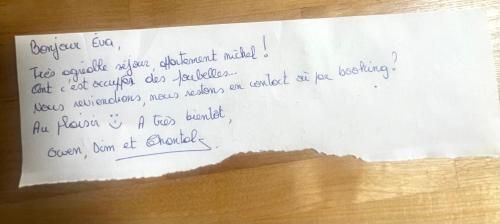 Bonjour Eva,
Très agréable séjour, appartement nickel !
On s'est occupé des poubelles...
Nous reviendrons, nous restons en contact où par booking ?
Au plaisir ☺ A très bientôt,
Gwen, Dim et Chantal